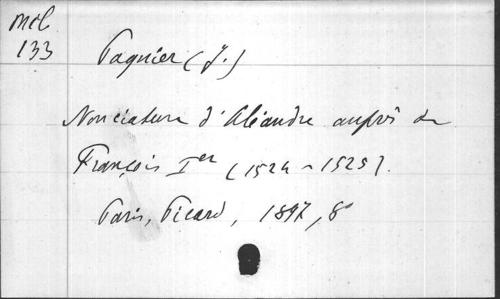 Mel
133
Paquier (J.)
Nonciature d'Aléandre auprès de
François Ier (1524-1525).
Paris, Picard, 1897, 8°